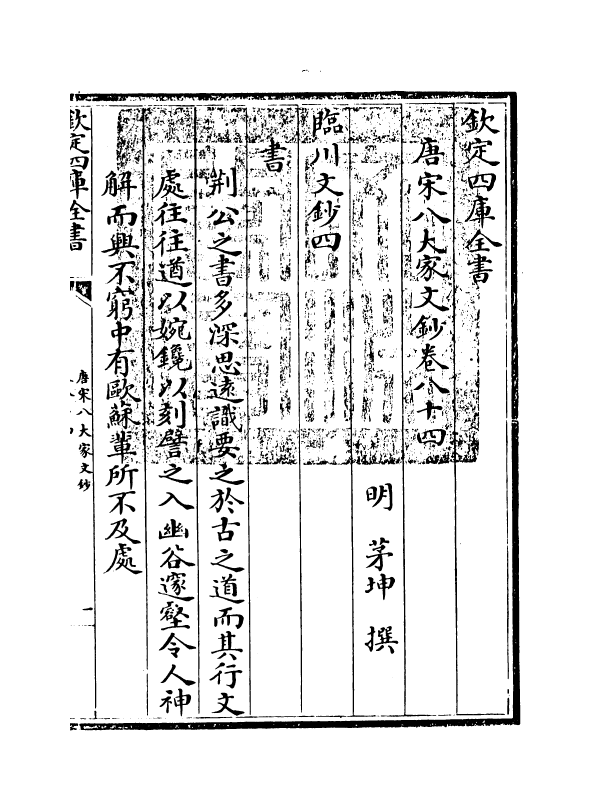 欽定四庫全書
唐宋八大家文鈔卷八十四
明 茅坤 撰
臨川文鈔四
書
荆公之書多深思遠識要之於古之道而其行文
處往往遒以婉鑱以刻譬之入幽谷邃壑令人神
解而興不窮中有歐蘇軰所不及處
欽定四庫全書
唐宋八大家文鈔
一